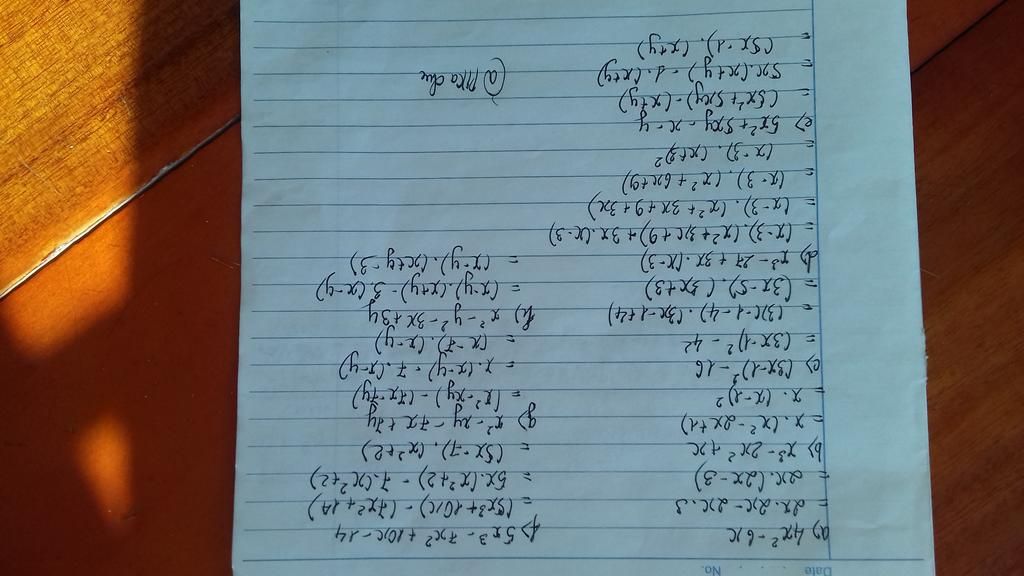 Date No.
a) 4x² - 6x
= 2x.2x - 2x.3
= 2x(2x - 3)
b) x³ - 2x² + x
= x.(x² - 2x + 1)
= x.(x - 1)²
c) (3x - 1)² - 16
= (3x - 1)² - 4²
= (3x - 1 - 4).(3x - 1 + 4)
= (3x - 5).(3x + 3)
d) x³ - 27 + 3x.(x - 3)
= (x - 3).(x² + 3x + 9) + 3x.(x - 3)
= (x - 3).(x² + 3x + 9 + 3x)
= (x - 3).(x² + 6x + 9)
= (x - 3).(x + 3)²
e) 5x² + 5xy - x - y
= (5x² + 5xy) - (x + y)
= 5x.(x + y) - 1.(x + y)
= (5x - 1).(x + y)
f) 5x³ - 7x² + 10x - 14
= (5x3 + 10x) - (7x² + 14)
= 5x(x² + 2) - 7.(x² + 2)
= (5x - 7).(x² + 2)
g) x² - xy - 7x + 7y
= (x² - xy) - (7x - 7y)
= x(x - y) - 7.(x - y)
= (x - 7).(x - y)
h) x² - y² - 3x + 3y
= (x - y).(x + y) - 3.(x - y)
= (x - y).(x + y - 3)